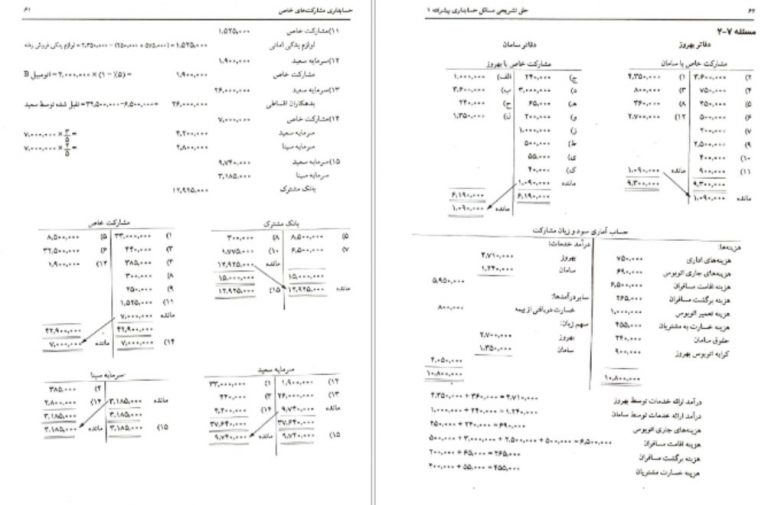 ۶۲ حل تشریحی مسائل حسابداری پیشرفته ۱
مسئله ۷-۲
دفاتر بهروز
مشارکت خاص با سامان
۲) ۳,۶۰۰,۰۰۰ ۱) ۴,۳۵۰,۰۰۰
۴) ۷۵۰,۰۰۰ ۳) ۸۰۰,۰۰۰
۵) ۴۵۰,۰۰۰ ۸) ۳۶۰,۰۰۰
۶) ۵۰۰,۰۰۰ ۱۲) ۲,۷۰۰,۰۰۰
۷) ۲۰۰,۰۰۰
۹) ۲,۵۰۰,۰۰۰
۱۰) ۴۰۰,۰۰۰
۱۱) ۹۰۰,۰۰۰ مانده ۱,۰۹۰,۰۰۰
۹,۳۰۰,۰۰۰ ۹,۳۰۰,۰۰۰
مانده ۱,۰۹۰,۰۰۰
دفاتر سامان
مشارکت خاص با بهروز
ج) ۲۴۰,۰۰۰ الف) ۱,۰۰۰,۰۰۰
د) ۳,۰۰۰,۰۰۰ ب) ۳,۶۰۰,۰۰۰
ه) ۶۵,۰۰۰ ح) ۲۴۰,۰۰۰
و) ۲۰۰,۰۰۰ ل) ۱,۳۵۰,۰۰۰
ز) ۱,۰۰۰,۰۰۰
ط) ۵۰۰,۰۰۰
ی) ۵۵,۰۰۰
ک) ۴۰,۰۰۰
مانده ۱,۰۹۰,۰۰۰
۶,۱۹۰,۰۰۰ ۶,۱۹۰,۰۰۰
مانده ۱,۰۹۰,۰۰۰
حساب آماری سود و زیان مشارکت
هزینه‌ها: درآمد خدمات:
هزینه‌های اداری ۷۵۰,۰۰۰ بهروز ۴,۷۱۰,۰۰۰
هزینه‌های جاری اتوبوس ۶۹۰,۰۰۰ سامان ۱,۲۴۰,۰۰۰
هزینه اقامت مسافران ۶,۵۰۰,۰۰۰ ۵,۹۵۰,۰۰۰
هزینه برگشت مسافران ۲۶۵,۰۰۰ سایر درآمدها:
هزینه تعمیر اتوبوس ۱,۰۰۰,۰۰۰ خسارت دریافتی از بیمه ۸۰۰,۰۰۰
هزینه خسارت به مشتریان ۴۵۵,۰۰۰ سهم زیان:
حقوق سامان ۲۴۰,۰۰۰ بهروز ۲,۷۰۰,۰۰۰
کرایه اتوبوس بهروز ۹۰۰,۰۰۰ سامان ۱,۳۵۰,۰۰۰
۴,۰۵۰,۰۰۰
۱۰,۸۰۰,۰۰۰ ۱۰,۸۰۰,۰۰۰
درآمد ارائه خدمات توسط بهروز ۴,۳۵۰,۰۰۰ + ۳۶۰,۰۰۰ = ۴,۷۱۰,۰۰۰
درآمد ارائه خدمات توسط سامان ۱,۰۰۰,۰۰۰ + ۲۴۰,۰۰۰ = ۱,۲۴۰,۰۰۰
هزینه‌های جاری اتوبوس ۴۵۰,۰۰۰ + ۲۴۰,۰۰۰ = ۶۹۰,۰۰۰
هزینه اقامت مسافران ۵۰۰,۰۰۰ + ۳,۰۰۰,۰۰۰ + ۲,۵۰۰,۰۰۰ + ۵۰۰,۰۰۰ = ۶,۵۰۰,۰۰۰
هزینه برگشت مسافران ۲۰۰,۰۰۰ + ۶۵,۰۰۰ = ۲۶۵,۰۰۰
هزینه خسارت مشتریان ۴۰۰,۰۰۰ + ۵۵,۰۰۰ = ۴۵۵,۰۰۰
حسابداری مشارکت‌های خاص ۶۱
۱۱) مشارکت خاص ۱,۵۲۵,۰۰۰
لوازم یدکی امانی ۱,۵۲۵,۰۰۰ = (۲۵۰,۰۰۰ + ۵۷۵,۰۰۰) - ۲,۳۵۰,۰۰۰ = لوازم یدکی فروش رفته
۱۲) سرمایه سعید ۱,۹۰۰,۰۰۰
مشارکت خاص ۱,۹۰۰,۰۰۰ = (۱ - ۵٪) × ۲,۰۰۰,۰۰۰ = اتومبیل B
۱۳) سرمایه سعید ۲۶,۰۰۰,۰۰۰
بدهکاران اقساطی ۲۶,۰۰۰,۰۰۰ = ۳۲,۵۰۰,۰۰۰-۶,۵۰۰,۰۰۰ = تقبل شده توسط سعید
۱۴) مشارکت خاص ۷,۰۰۰,۰۰۰
سرمایه سعید ۴,۲۰۰,۰۰۰ = ۷,۰۰۰,۰۰۰ × ۳/۵
سرمایه سینا ۲,۸۰۰,۰۰۰ = ۷,۰۰۰,۰۰۰ × ۲/۵
۱۵) سرمایه سعید ۹,۷۴۰,۰۰۰
سرمایه سینا ۳,۱۸۵,۰۰۰
بانک مشترک ۱۲,۹۲۵,۰۰۰
بانک مشترک
۵) ۸,۵۰۰,۰۰۰ ۸) ۳۰۰,۰۰۰
۷) ۶,۵۰۰,۰۰۰ ۱۰) ۱,۷۷۵,۰۰۰
مانده ۱۲,۹۲۵,۰۰۰
۱۵,۰۰۰,۰۰۰ ۱۵,۰۰۰,۰۰۰
۱۲,۹۲۵,۰۰۰ ۱۵) ۱۲,۹۲۵,۰۰۰
مشارکت خاص
۱) ۳۳,۰۰۰,۰۰۰ ۵) ۸,۵۰۰,۰۰۰
۳) ۴۴۰,۰۰۰ ۶) ۳۲,۵۰۰,۰۰۰
۴) ۳۸۵,۰۰۰ ۱۲) ۱,۹۰۰,۰۰۰
۸) ۳۰۰,۰۰۰
۹) ۲۵۰,۰۰۰
۱۱) ۱,۵۲۵,۰۰۰
مانده ۷,۰۰۰,۰۰۰
۴۲,۹۰۰,۰۰۰ ۴۲,۹۰۰,۰۰۰
۱۴) ۷,۰۰۰,۰۰۰ مانده ۷,۰۰۰,۰۰۰
سرمایه سعید
۱۲) ۱,۹۰۰,۰۰۰ ۱) ۳۳,۰۰۰,۰۰۰
۱۳) ۲۶,۰۰۰,۰۰۰ ۳) ۴۴۰,۰۰۰
مانده ۹,۷۴۰,۰۰۰ ۱۴) ۴,۲۰۰,۰۰۰
۳۷,۶۴۰,۰۰۰ ۳۷,۶۴۰,۰۰۰
۱۵) ۹,۷۴۰,۰۰۰ مانده ۹,۷۴۰,۰۰۰
سرمایه سینا
۴) ۳۸۵,۰۰۰
مانده ۳,۱۸۵,۰۰۰ ۱۴) ۲,۸۰۰,۰۰۰
۳,۱۸۵,۰۰۰ ۳,۱۸۵,۰۰۰
۱۵) ۳,۱۸۵,۰۰۰ مانده ۳,۱۸۵,۰۰۰